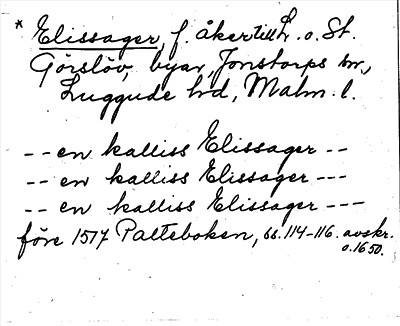 * Elissager, f. åker till L. o. St.
Görslöv, byar, Jonstorps sn,
Luggude hd, Malm. l.
-- en kalliss Elissager --
-- en kalliss Elissager ---
-- en kalliss Elissager ---
före 1517 Palteboken, ss. 114-116. avskr.
o. 1650.